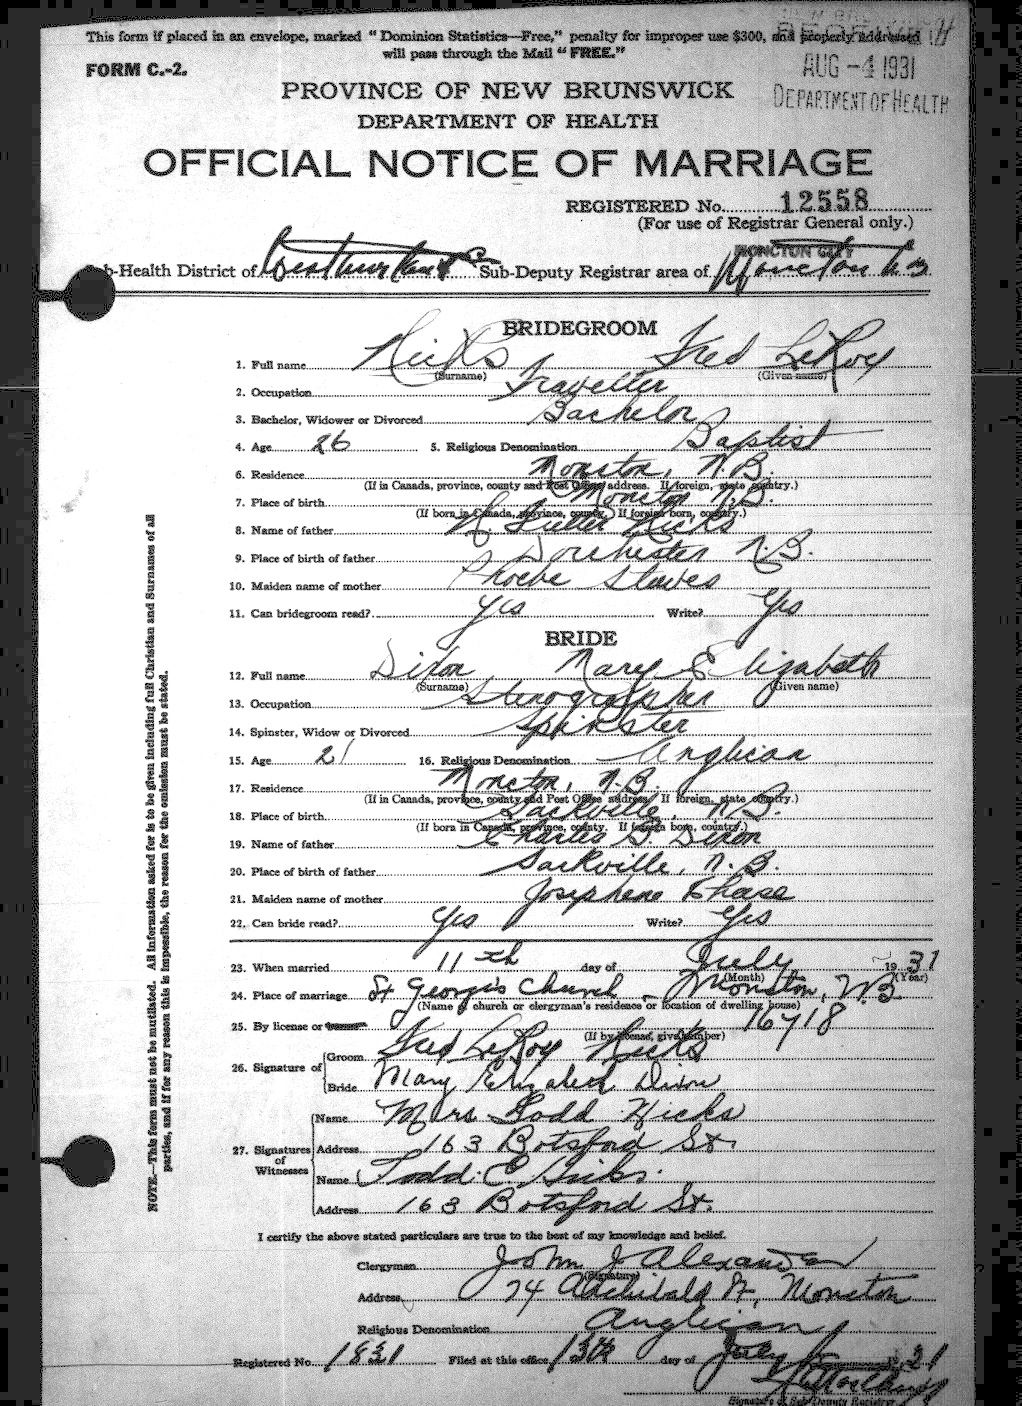 This form if placed in an envelope, marked "Dominion Statistics—Free," penalty for improper use $300, and properly addressed
will pass through the Mail "FREE."
FORM C.-2.
AUG -4 1931
DEPARTMENT OF HEALTH
PROVINCE OF NEW BRUNSWICK
DEPARTMENT OF HEALTH
OFFICIAL NOTICE OF MARRIAGE
REGISTERED No. 12558
(For use of Registrar General only.)
MONCTON CITY
Sub-Health District of Westmorland Co Sub-Deputy Registrar area of Moncton
BRIDEGROOM
1. Full name Hicks Fred LeRoy
(Surname) (Given name)
2. Occupation Traveller
3. Bachelor, Widower or Divorced Bachelor
4. Age 26 5. Religious Denomination Baptist
6. Residence Moncton, N.B.
(If in Canada, province, county and Post Office address. If foreign, state country.)
7. Place of birth Moncton N.B.
(If born in Canada, province, county. If foreign born, country.)
8. Name of father Fuller Hicks
9. Place of birth of father Dorchester N.B.
10. Maiden name of mother Phoebe Steeves
11. Can bridegroom read? Yes Write? Yes
BRIDE
12. Full name Dixon Mary Elizabeth
(Surname) (Given name)
13. Occupation Stenographer
14. Spinster, Widow or Divorced Spinster
15. Age 21 16. Religious Denomination Anglican
17. Residence Moncton, N.B.
(If in Canada, province, county and Post Office address. If foreign, state country.)
18. Place of birth Sackville, N.B.
(If born in Canada, province, county. If foreign born, country.)
19. Name of father Charles G. Dixon
20. Place of birth of father Sackville, N.B.
21. Maiden name of mother Josephene Chase
22. Can bride read? Yes Write? Yes
23. When married 11th day of July 1931
(Month) (Year)
24. Place of marriage St George's Church - Moncton, N.B
(Name of church or clergyman's residence or location of dwelling house)
25. By license or 16718
(If by license, give number)
26. Signature of Groom Fred LeRoy Hicks
Bride Mary Elizabeth Dixon
27. Signatures of Witnesses
Name Mrs Todd Hicks
Address 163 Botsford St.
Name Todd E. Hicks.
Address 163 Botsford St.
I certify the above stated particulars are true to the best of my knowledge and belief.
Clergyman John J Alexander
(Signature)
Address 74 Archibald St, Moncton
Religious Denomination Anglican
Registered No. 1831 Filed at this office 13th day of July 1931
Signature of Sub-Deputy Registrar
NOTE.—This form must not be mutilated. All information asked for is to be given including full Christian and Surnames of all
parties, and if for any reason this is impossible, the reason for the omission must be stated.